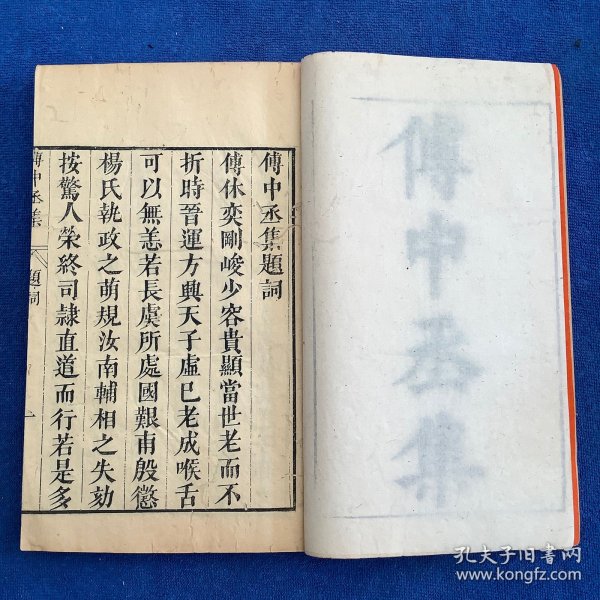 傅中丞集
傅中丞集題詞
傅休奕剛峻少容貴顯當世老而不
折時晉運方興天子虛已老成喉舌
可以無恙若長虞所處國艱甫殷懲
楊氏執政之萌規汝南輔相之失劾
按驚人榮終司隷直道而行若是多
傅中丞集
題詞
一
孔夫子旧书网
www.kongfz.com